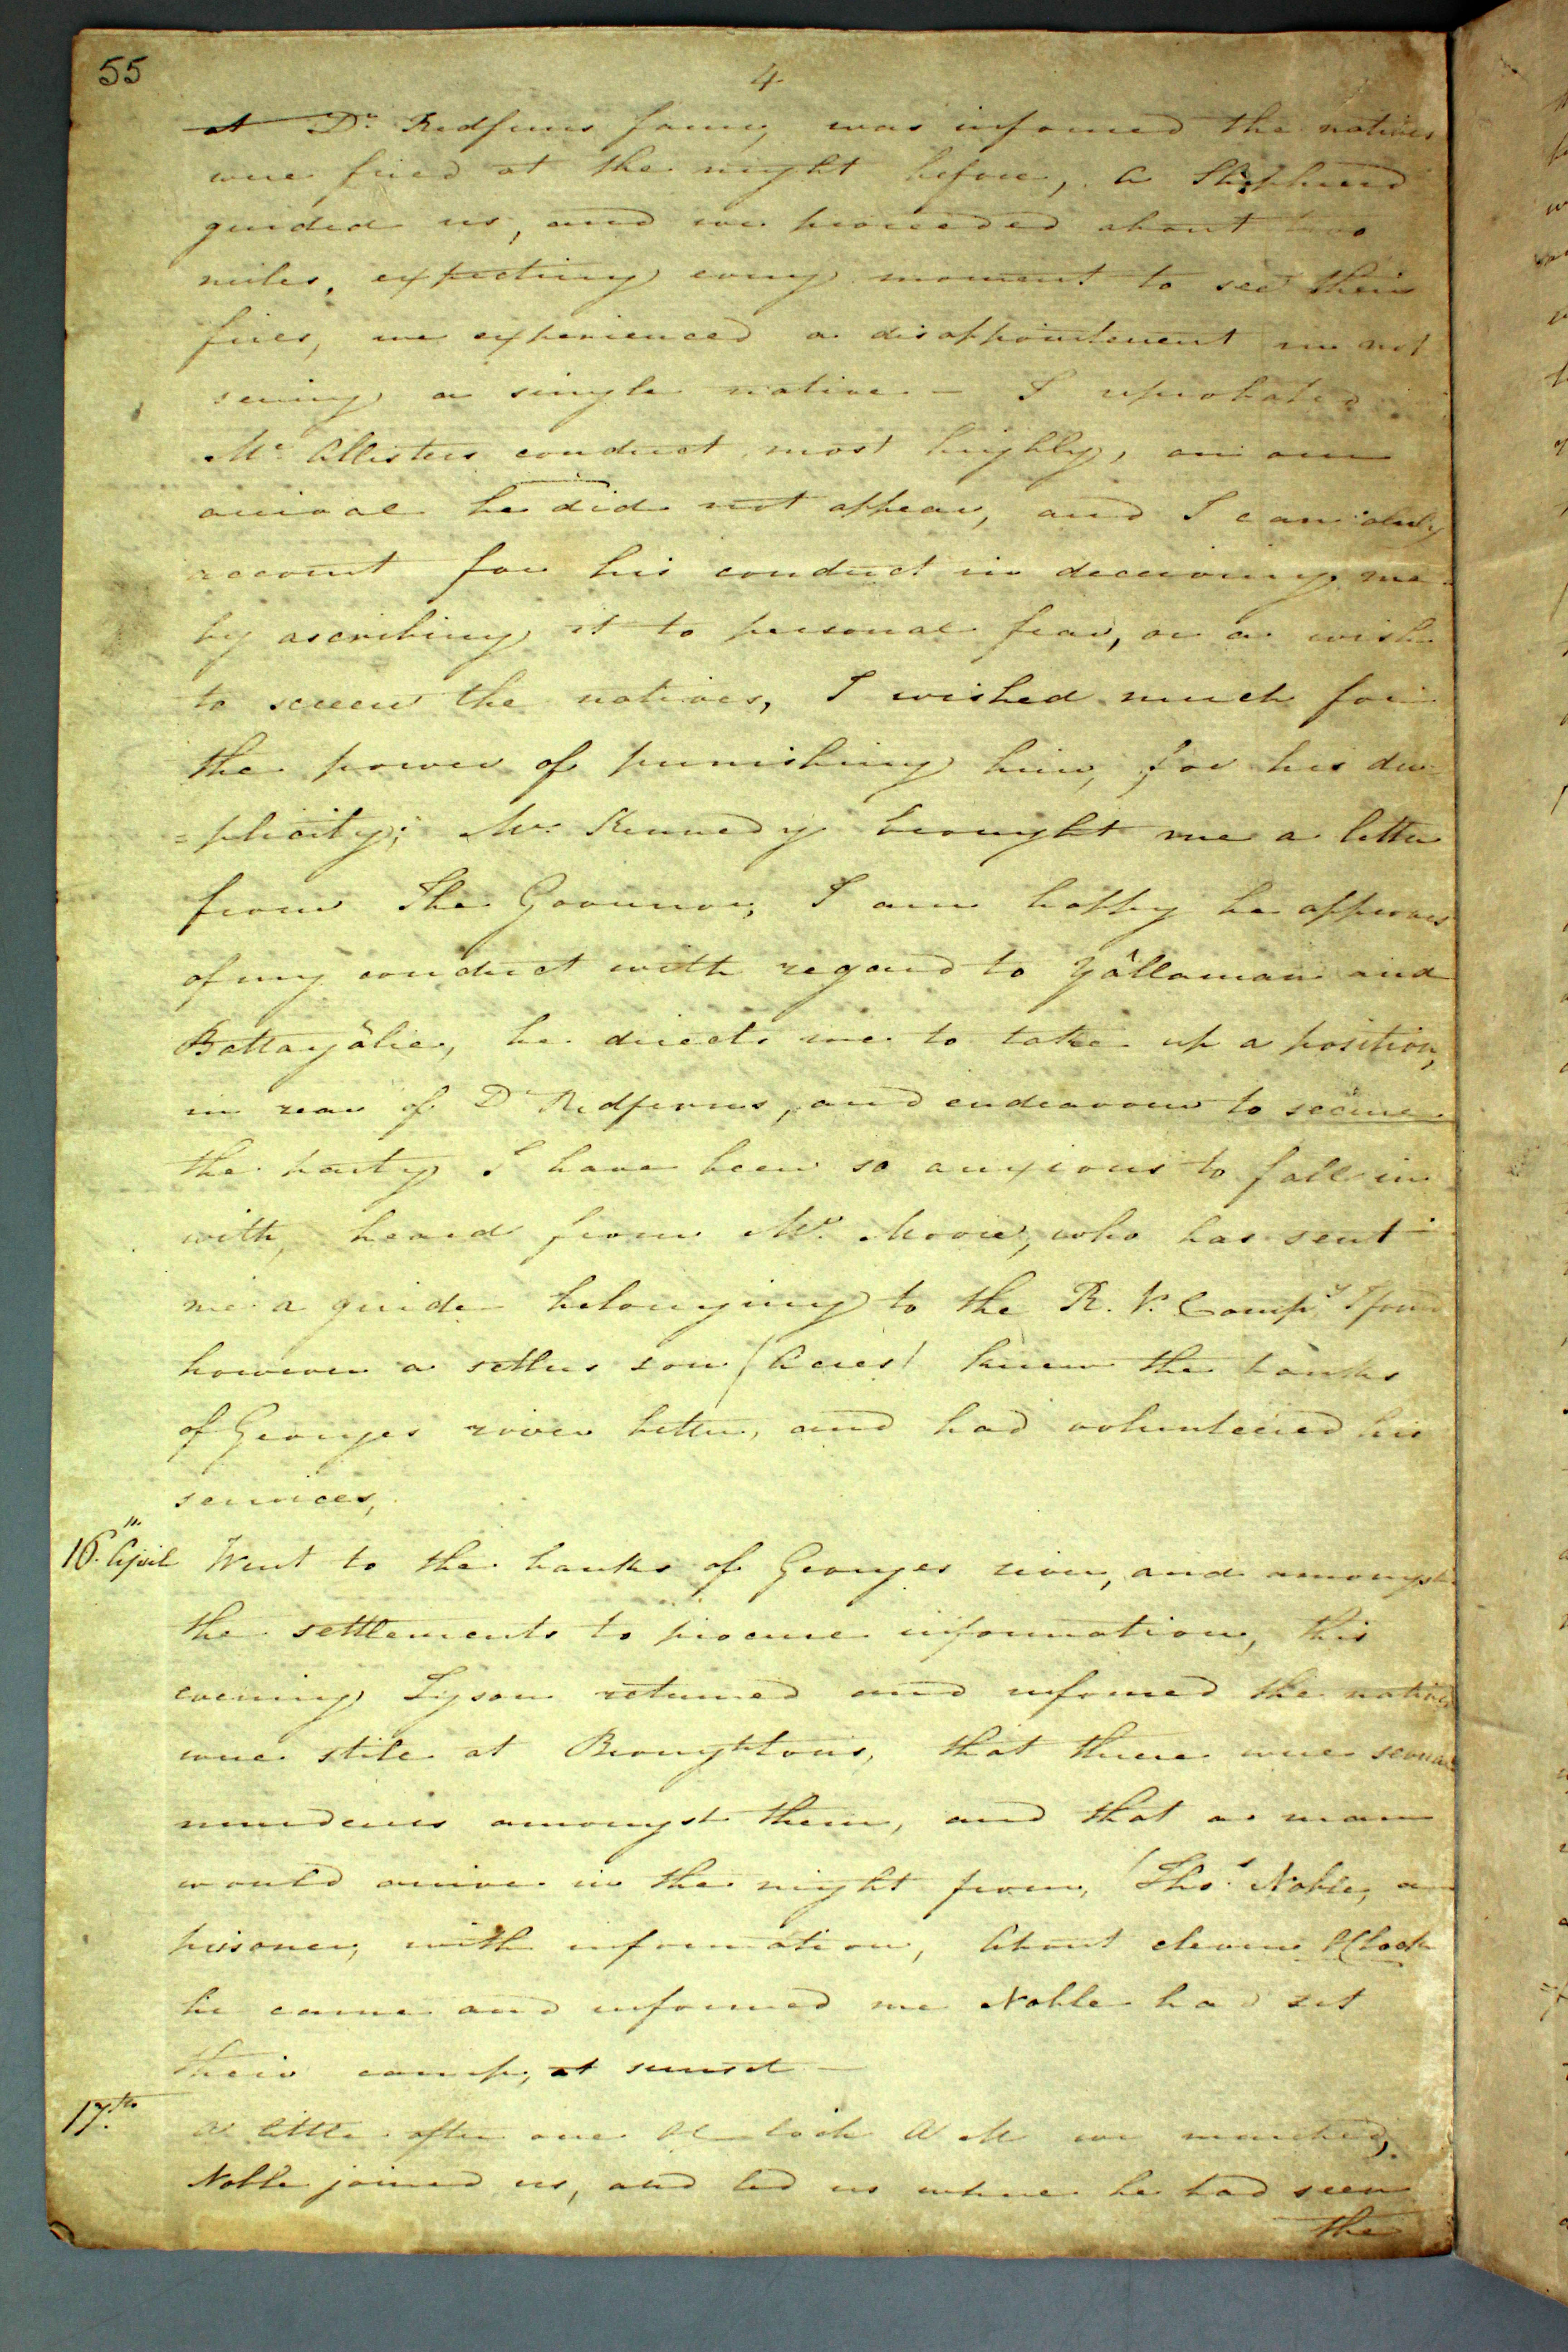 55
4
at Dr. Redferns farm, was informed the natives
were fired at the night before, a Shepherd
guided us, and we proceeded about two
miles, expecting every moment to see their
fires, we experienced a disappointment in not
seeing a single native - I reprobated
Mr. Allisters conduct most highly, on our
arrival he did not appear, and I can only
account for his conduct in deceiving me
by ascribing it to personal fear, or a wish
to screen the natives, I wished much for
the power of punishing him, for his du-
=plicity; Mr. Kennedy brought me a letter
from The Governor, I am happy he approves
of my conduct with regard to Yallaman and
Battagalie, he directs me to take up a position,
in rear of Dr Redferns, and endeavour to secure
the party I have been so anxious to fall in
with, heard from Mr. Moore, who has sent
me a guide belonging to the R. V. Compy I found
however a settlers son (Acres) knew the banks
of Georges river better, and had volunteered his
services,
16th. April Went to the banks of Georges river, and amongst
the settlements to procure information, this
evening Tyson returned and informed the natives
were still at Broughtons, that there were several
murderers amongst them, and that a man
would arrive in the night from, Thos. Noble, a
prisoner, with information, About eleven OClock
he came and informed me Noble had set
their camp, at sunset -
17.th A little after one OClock A M we marched,
Noble joined us, and led us where he had seen
the